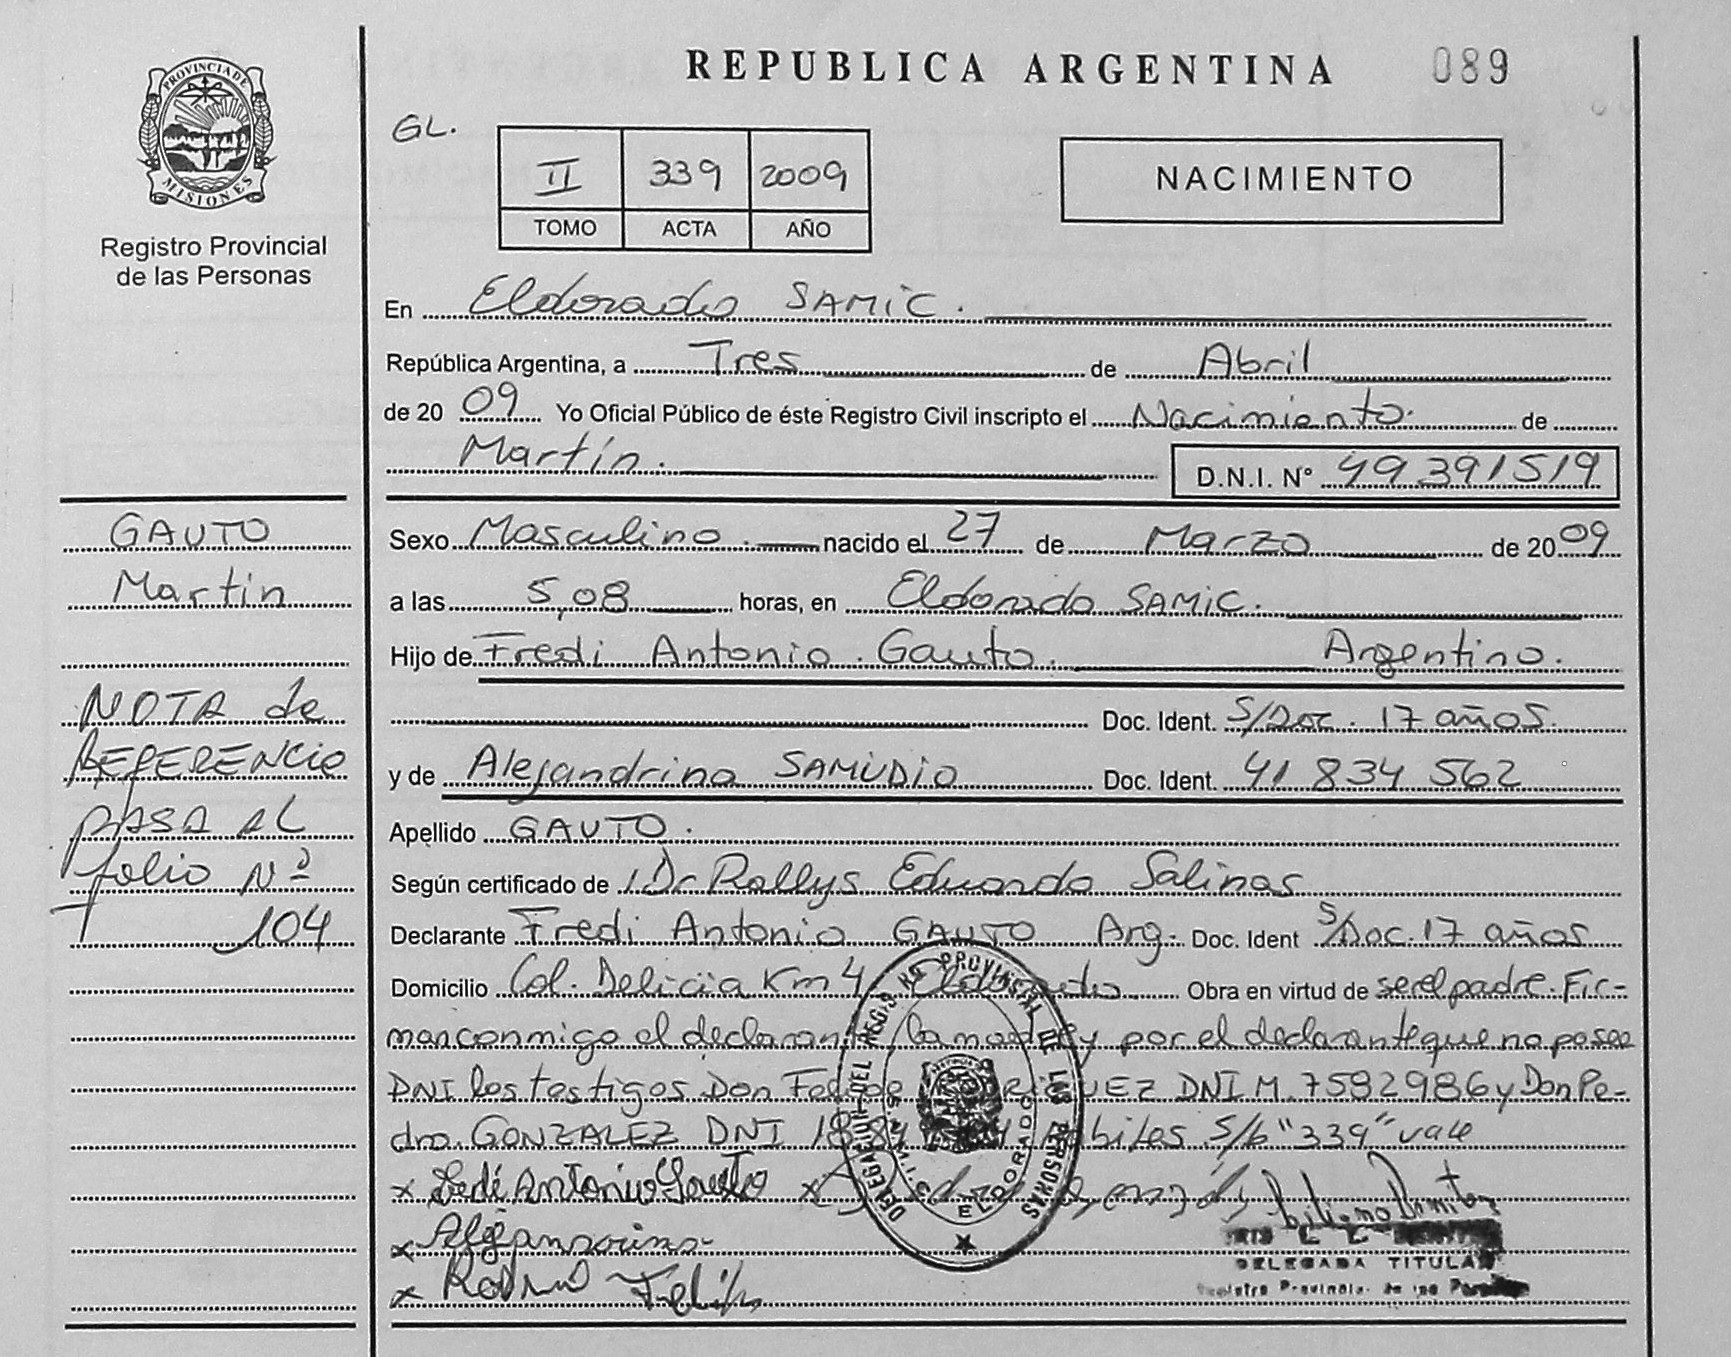 REPUBLICA ARGENTINA 089
PROVINCIA DE
MISIONES
Registro Provincial
de las Personas
GL.
II 339 2009
TOMO ACTA AÑO
NACIMIENTO
En Eldorado SAMIC.
República Argentina, a Tres de Abril
de 2009 Yo Oficial Público de éste Registro Civil inscripto el Nacimiento de
Martín. D.N.I. N° 49391519
GAUTO
Martin
NOTA de
REFERENCIA
PASA AL
folio Nº
104
Sexo Masculino. nacido el 27 de Marzo de 2009
a las 5,08 horas, en Eldorado SAMIC.
Hijo de Fredi Antonio Gauto. Argentino.
Doc. Ident. S/Doc. 17 años.
y de Alejandrina SAMUDIO Doc. Ident. 41 834 562
Apellido GAUTO.
Según certificado de Dr Rallys Eduardo Salinas
Declarante Fredi Antonio GAUTO Arg. Doc. Ident S/Doc. 17 años
Domicilio Col. Delicia Km 4 Eldorado Obra en virtud de ser el padre. Fir-
man conmigo el declarante la madre y por el declarante que no posee
DNI los testigos Don DNI M. 7592986 y Don Pe-
dro GONZALEZ DNI habiles S/b "339" vale
x Fredi Antonio Gauto x
x
x
DELEGACION DEL REGISTRO PROVINCIAL DE LAS PERSONAS
ELDORADO
DELEGADA TITULAR
Registro Provincial de las Personas